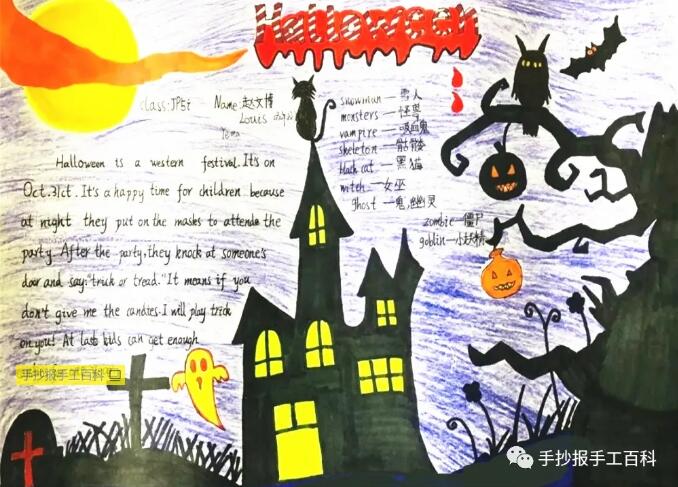 Halloween
class:JP5i Name:赵文博
Louis
snowman—雪人
monsters—怪兽
vampire—吸血鬼
skeleton—骷髅
black cat—黑猫
witch—女巫
ghost—鬼,幽灵
zombie—僵尸
goblin—小妖精
Halloween is a western festival. It's on
Oct.31ct. It's a happy time for children because
at night they put on the masks to attende the
party. After the party, they knock at someone's
door and say:"trick or tread." It means if you
don't give me the candies. I will play trick
on you! At last kids can get enough.
手抄报手工百科
手抄报手工百科